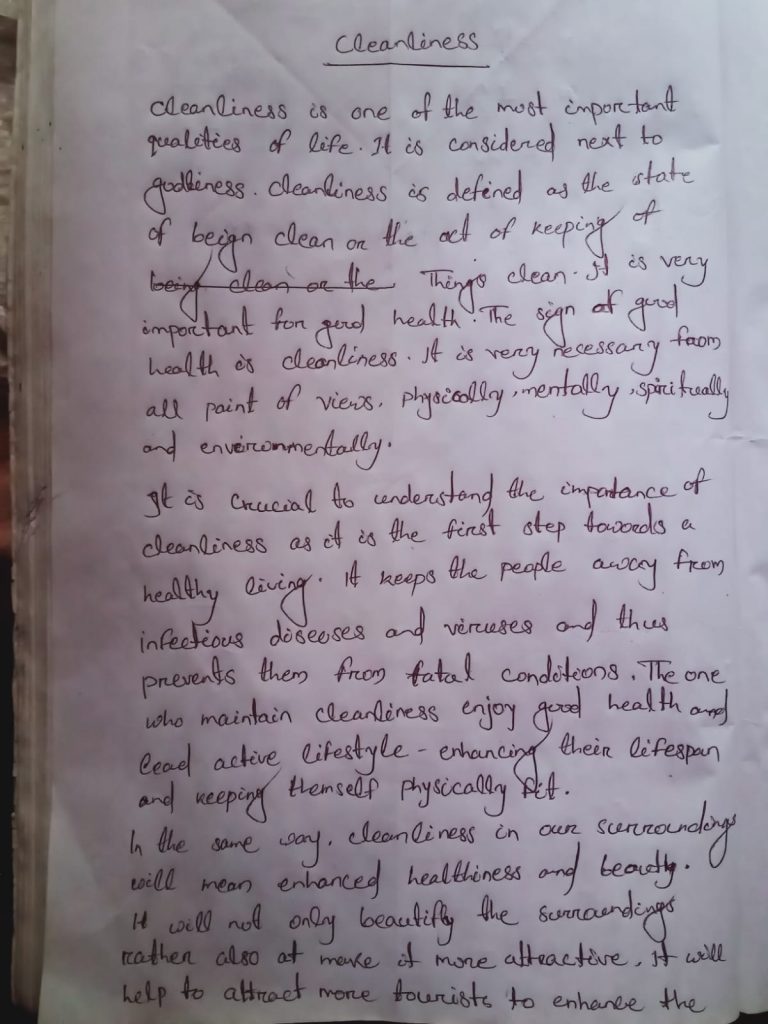 Cleanliness
Cleanliness is one of the most important
qualities of life. It is considered next to
godliness. Cleanliness is defined as the state
of beign clean or the act of keeping of
being clean or the Things clean. It is very
important for good health. The sign of good
health is cleanliness. It is very necessary from
all point of views, physically, mentally, spiritually
and environmentally.
It is crucial to understand the importance of
cleanliness as it is the first step towards a
healthy living. It keeps the people away from
infectious diseases and viruses and thus
prevents them from fatal conditions. The one
who maintain cleanliness enjoy good health and
lead active lifestyle - enhancing their lifespan
and keeping themself physically fit.
In the same way, cleanliness in our surroundings
will mean enhanced healthiness and beauty.
It will not only beautify the surroundings
rather also at make it more attractive. It will
help to attract more tourists to enhance the